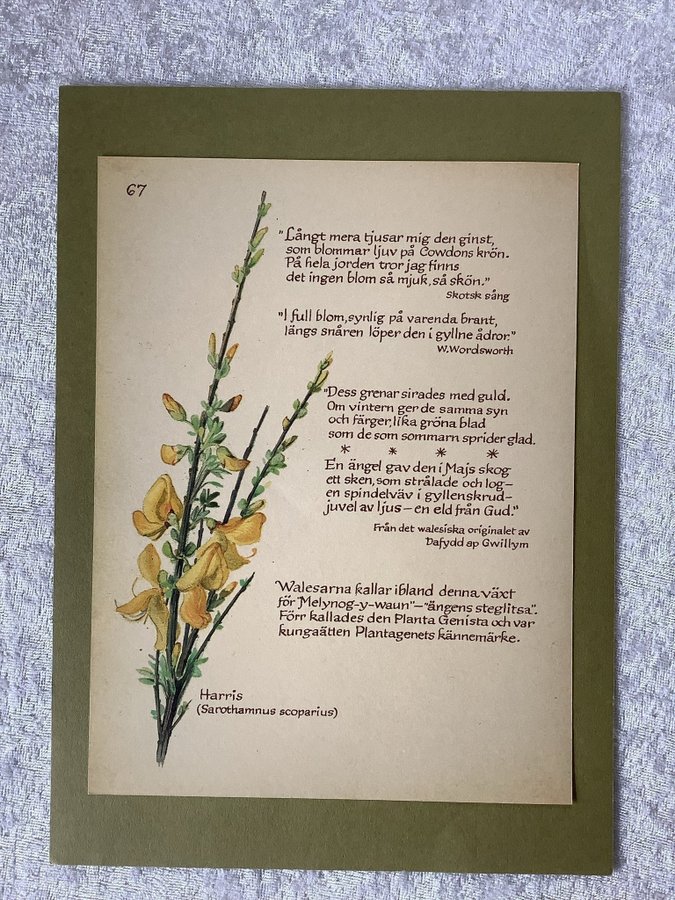 67
"Långt mera tjusar mig den ginst,
som blommar ljuv på Cowdons krön.
På hela jorden tror jag finns
det ingen blom så mjuk, så skön."
Skotsk sång
"I full blom, synlig på varenda brant,
längs snåren löper den i gyllne ådror."
W. Wordsworth
"Dess grenar sirades med guld.
Om vintern ger de samma syn
och färger, lika gröna blad
som de som sommarn sprider glad.
* * * *
En ängel gav den i Majs skog
ett sken, som strålade och log–
en spindelväv i gyllenskrud–
juvel av ljus – en eld från Gud."
Från det walesiska originalet av
Dafydd ap Gwillym
Walesarna kallar ibland denna växt
för "Melynog-y-waun" – "ängens steglitsa".
Förr kallades den Planta Genista och var
kungaätten Plantagenets kännemärke.
Harris
(Sarothamnus scoparius)